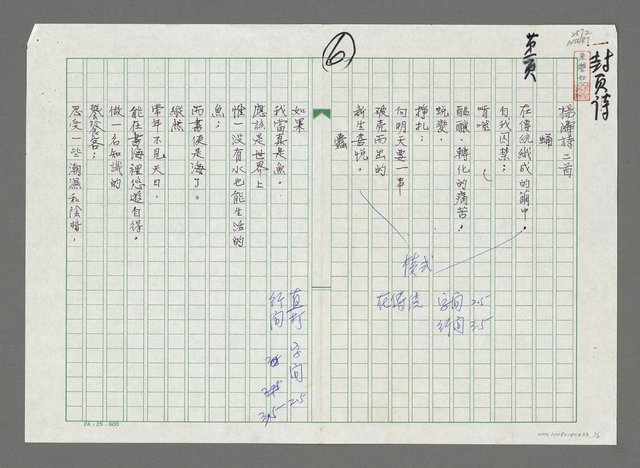 封頁詩
第一頁
6
楊濤詩二首
蛹
在傳統織成的繭中，
自我囚禁；
咀嚼
醞釀、轉化的痛苦！
蛻變，
掙扎；
向明天要一串
破壳而出的
新生喜悅。
蠹
如果
我當真是魚，
應該是世界上
惟一沒有水也能生活的
魚；
而書便是海了。
縱然
常年不見天日，
能在書海裡悠遊自得，
做一名知識的
饕餮客；
忍受一些潮濕和陰暗，
橫式
花傳院 字间 2.5
行间 3.5
直打 字间 2.5
行间 3.5
24×25=600